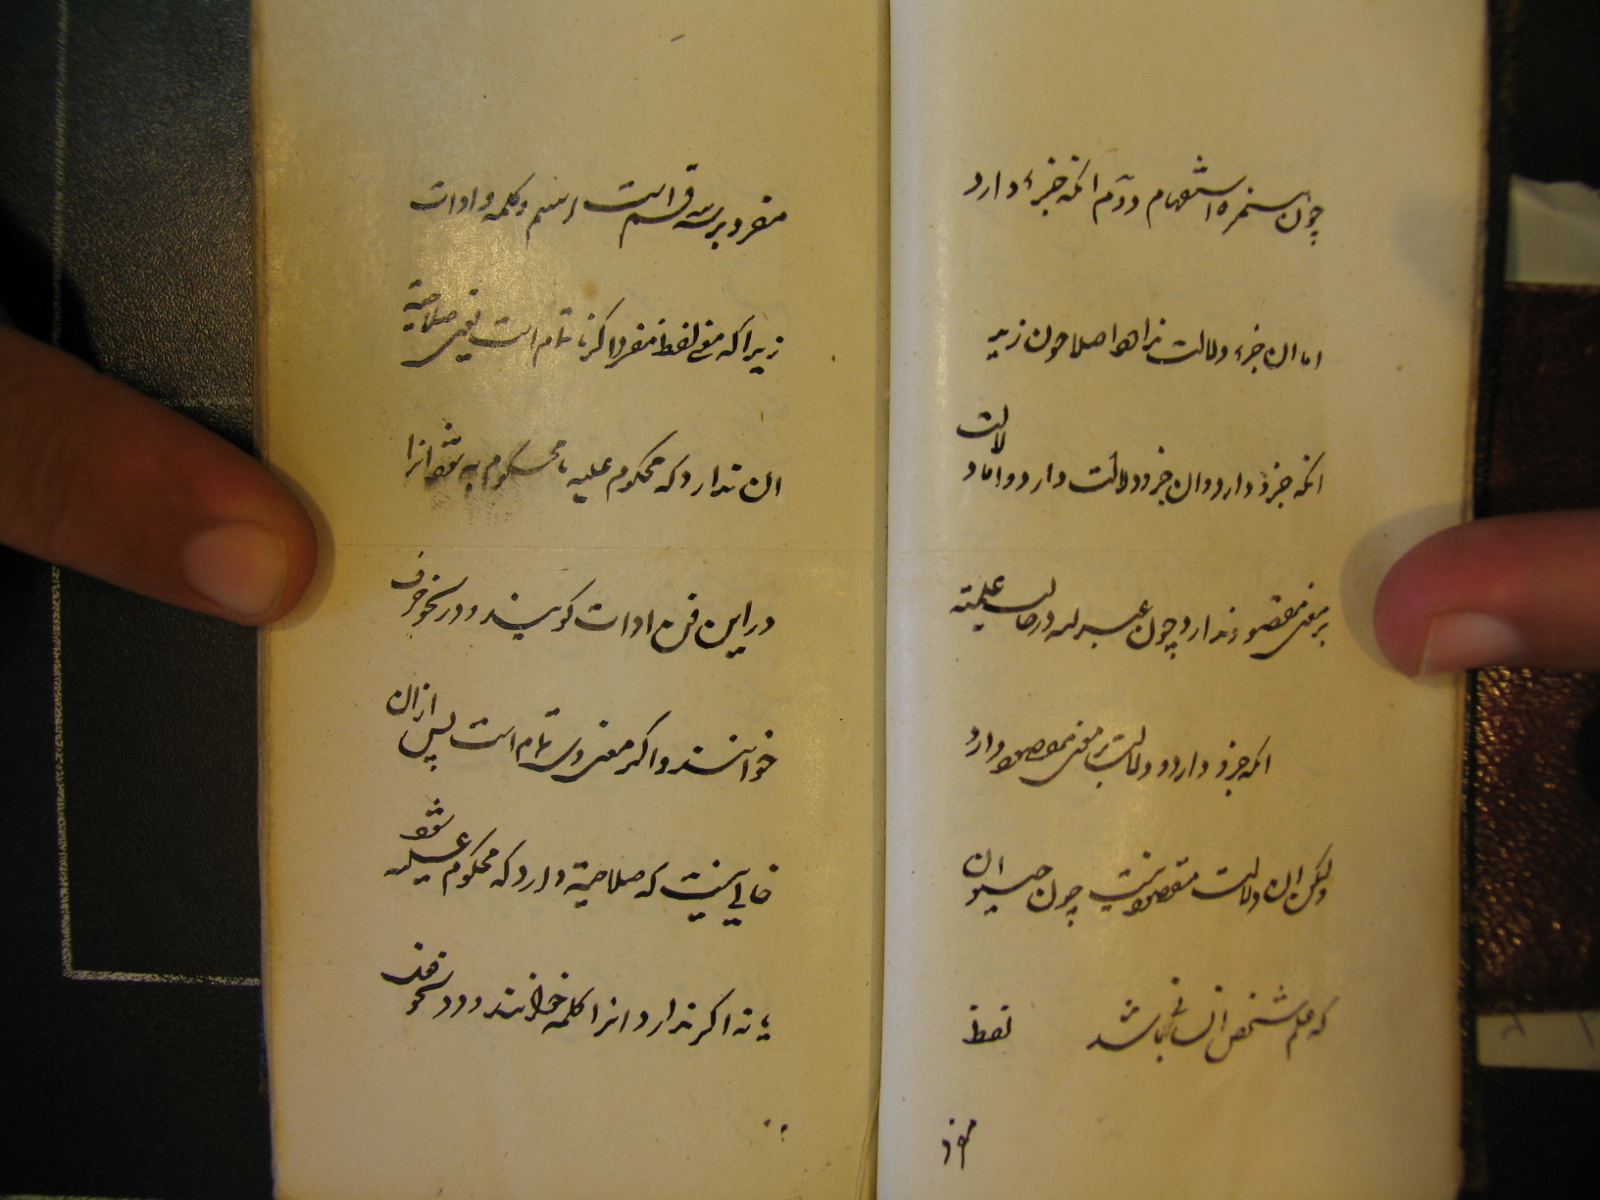 چون همزه استفهام دوم انکه جزء دارد
اما ان جزء دلالت ندارد اصلا چون زید
انکه جزء دارد و ان جزء دلالت دارد و اما دلالت
بر معنی مقصود ندارد چون عبد الله در حالت علمیته
انکه جزء دارد و دلالت بر معنی مقصود دارد
ولیکن ان دلالت مقصود نیست چون حیوان
که علم شخص انسانی باشد لفظ
مفرد
مفرد بر سه قسم است اسم و کلمه و ادات
زیرا که معنی لفظ مفرد اگر ناتمام است یعنی صلاحیة
ان ندارد که محکوم علیه یا محکوم به شود انرا
در این فن ادات کویند و در نحو حرف
خوانند و اکر معنی وی تمام است پس از ان
خالی نیست که صلاحیة دارد که محکوم علیه شود
یا نه اکر ندارد انرا کلمه خوانند و در نحو فعل